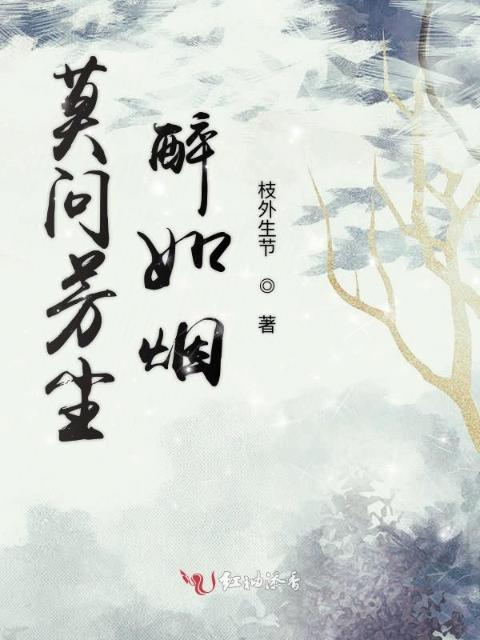 莫问芳尘
醉如烟
枝外生节 ◎ 著
红袖添香